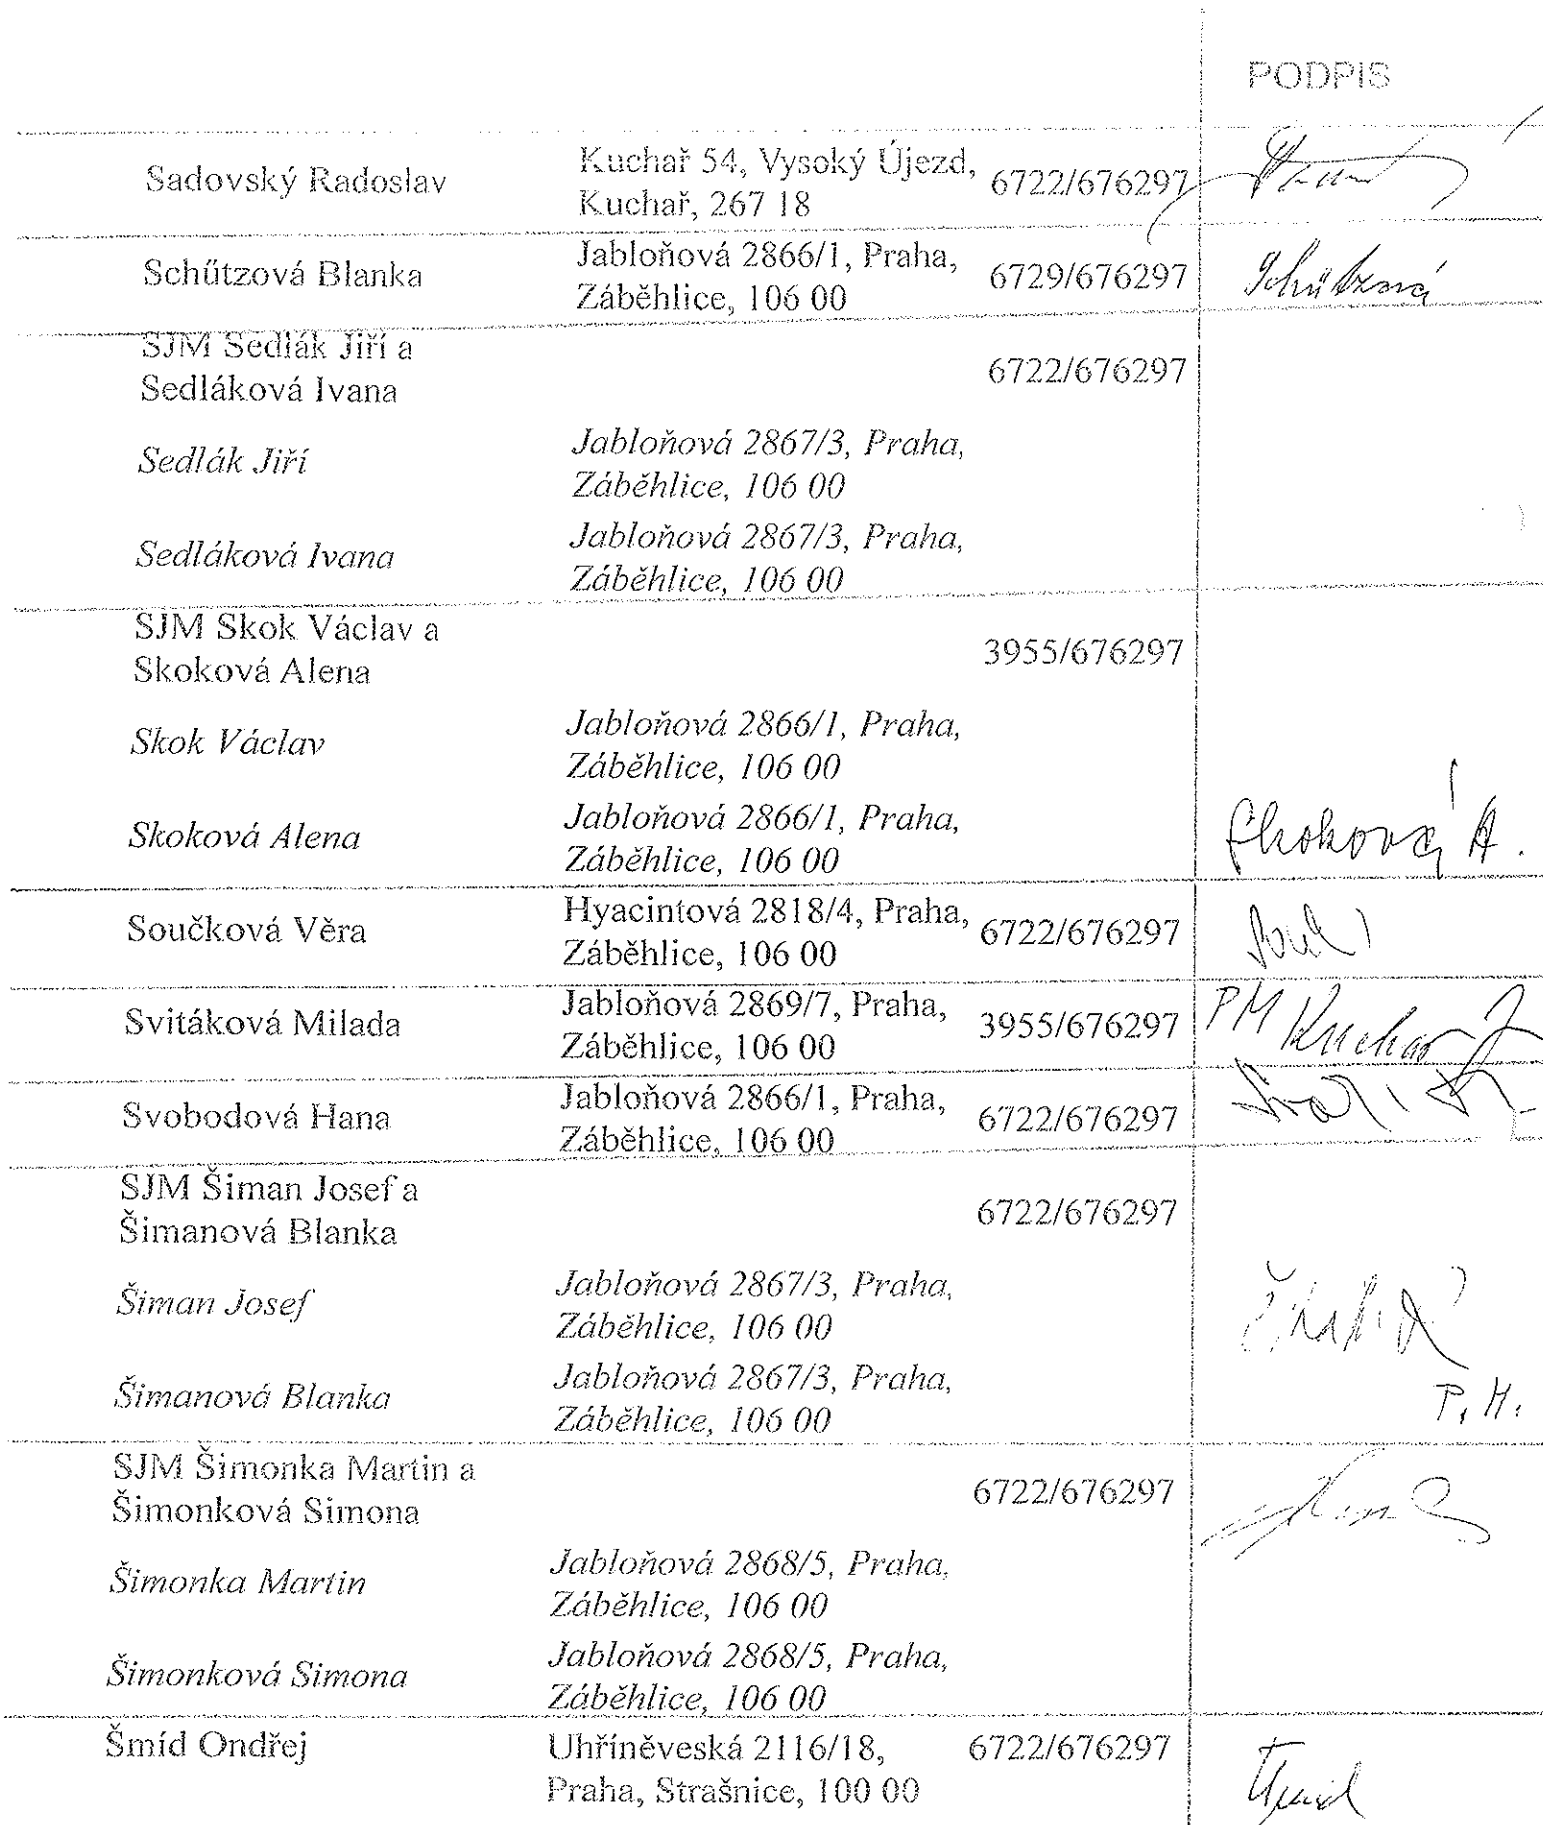 PODPIS
Sadovský Radoslav
Kuchař 54, Vysoký Újezd,
Kuchař, 267 18
6722/676297
Schűtzová Blanka
Jabloňová 2866/1, Praha,
Záběhlice, 106 00
6729/676297
Schützová
SJM Sedlák Jiří a
Sedláková Ivana
6722/676297
Sedlák Jiří
Jabloňová 2867/3, Praha,
Záběhlice, 106 00
Sedláková Ivana
Jabloňová 2867/3, Praha,
Záběhlice, 106 00
SJM Skok Václav a
Skoková Alena
3955/676297
Skok Václav
Jabloňová 2866/1, Praha,
Záběhlice, 106 00
Skoková Alena
Jabloňová 2866/1, Praha,
Záběhlice, 106 00
Skoková A.
Součková Věra
Hyacintová 2818/4, Praha,
Záběhlice, 106 00
6722/676297
Svitáková Milada
Jabloňová 2869/7, Praha,
Záběhlice, 106 00
3955/676297
PM Kuchař
Svobodová Hana
Jabloňová 2866/1, Praha,
Záběhlice, 106 00
6722/676297
SJM Šiman Josef a
Šimanová Blanka
6722/676297
Šiman Josef
Jabloňová 2867/3, Praha,
Záběhlice, 106 00
Šimanová Blanka
Jabloňová 2867/3, Praha,
Záběhlice, 106 00
P.M.
SJM Šimonka Martin a
Šimonková Simona
6722/676297
Šimonka Martin
Jabloňová 2868/5, Praha,
Záběhlice, 106 00
Šimonková Simona
Jabloňová 2868/5, Praha,
Záběhlice, 106 00
Šmíd Ondřej
Uhříněveská 2116/18,
Praha, Strašnice, 100 00
6722/676297